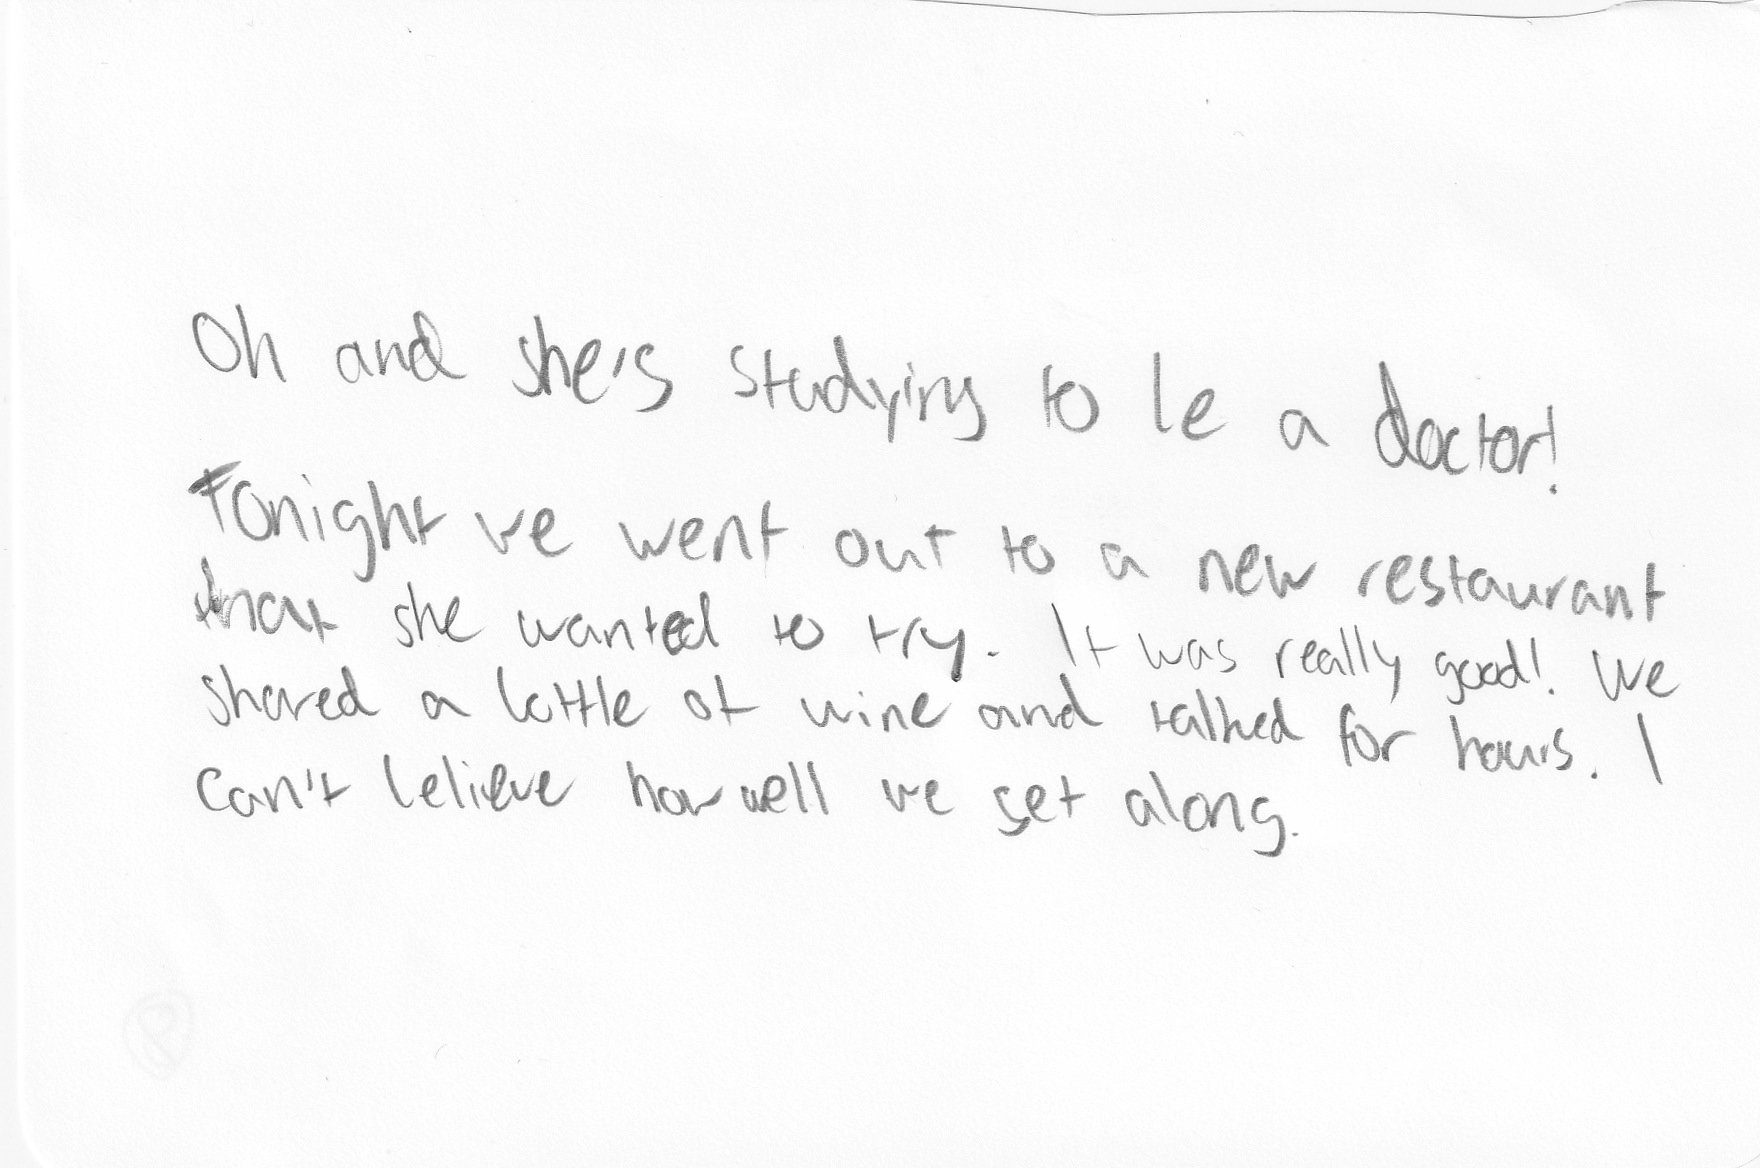 Oh and she's studying to be a doctor!
Tonight we went out to a new restaurant
that she wanted to try. It was really good! We
shared a bottle of wine and talked for hours. I
can't believe how well we get along.